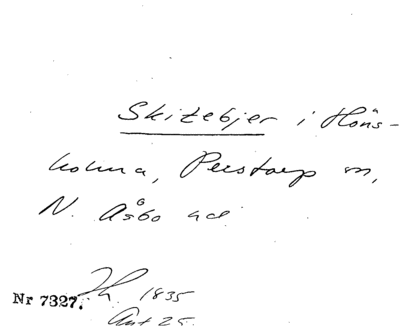 Skitebjer i Höns-
holma, Perstorp sn,
N. Åsbo hd
Nr 7327. Th. 1835
Ant 25.